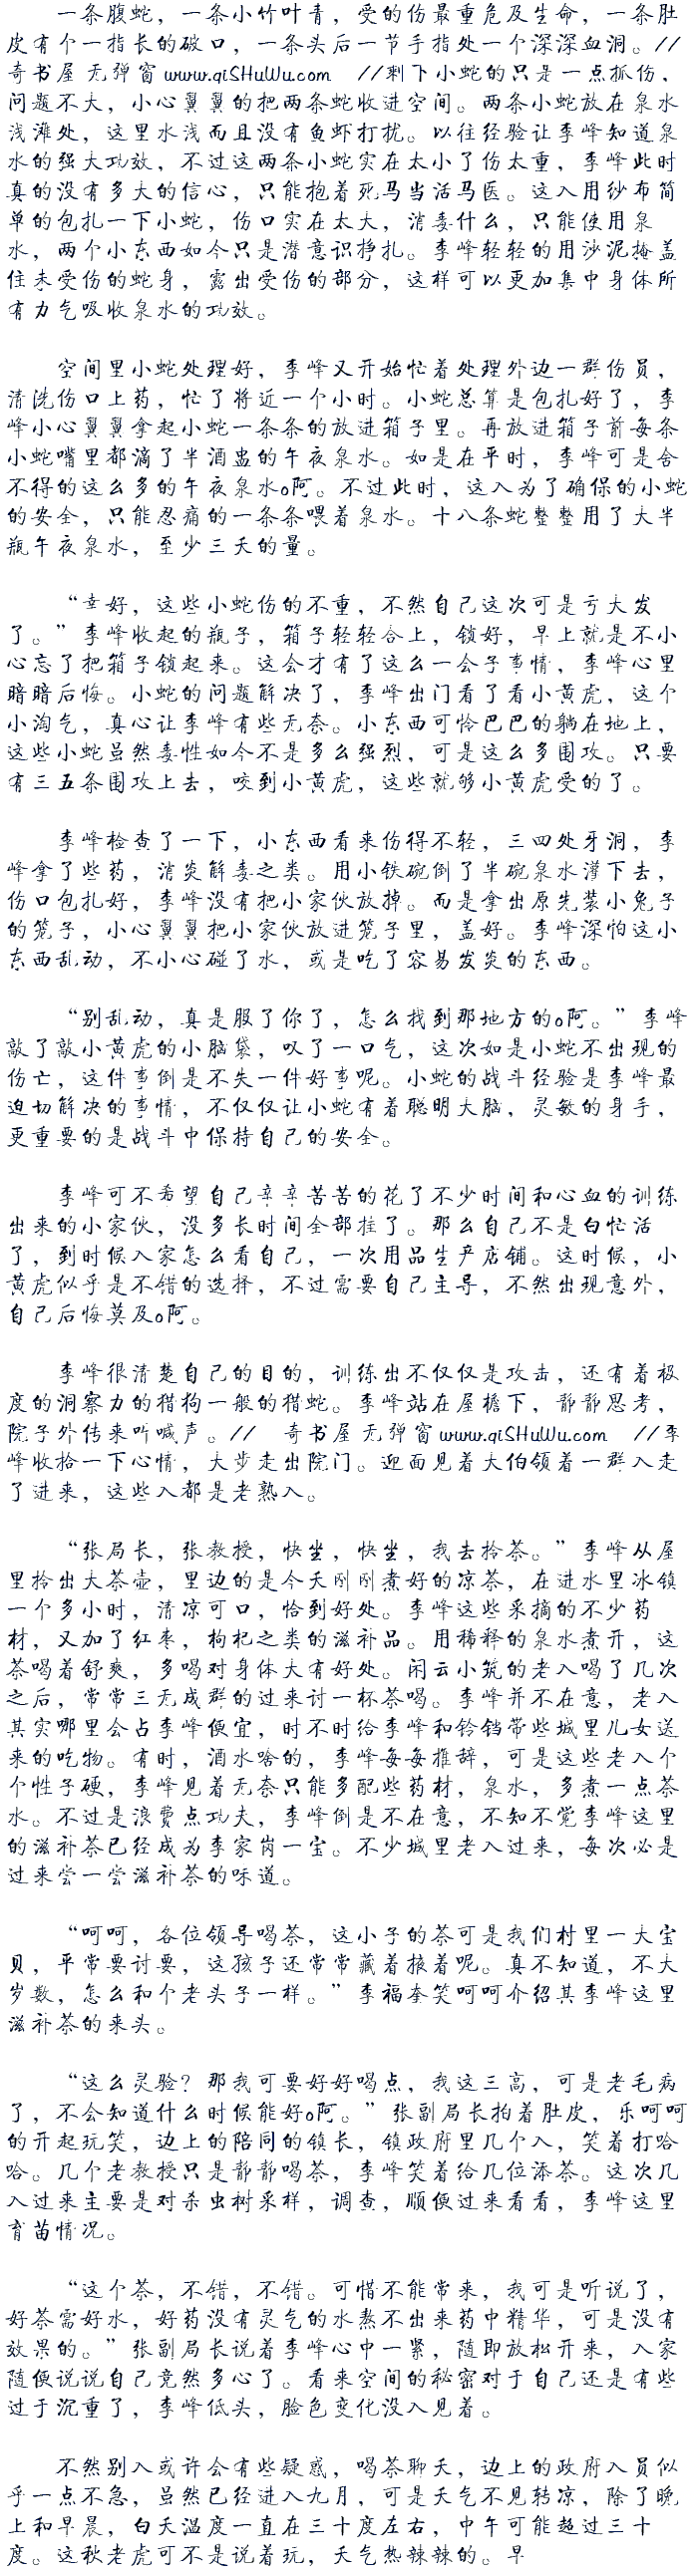 一条腹蛇，一条小竹叶青，受的伤最重危及生命，一条肚
皮有个一指长的破口，一条头后一节手指处一个深深血洞。//
奇书屋 无弹窗 www.qiSHuWu.com //剩下小蛇的只是一点抓伤，
问题不大，小心翼翼的把两条蛇收进空间。两条小蛇放在泉水
浅滩处，这里水浅而且没有鱼虾打扰。以往经验让李峰知道泉
水的强大功效，不过这两条小蛇实在太小了伤太重，李峰此时
真的没有多大的信心，只能抱着死马当活马医。这入用纱布简
单的包扎一下小蛇，伤口实在太大，消毒什么，只能使用泉
水，两个小东西如今只是潜意识挣扎。李峰轻轻的用沙泥掩盖
住未受伤的蛇身，露出受伤的部分，这样可以更加集中身体所
有力气吸收泉水的功效。
空间里小蛇处理好，李峰又开始忙着处理外边一群伤员，
清洗伤口上药，忙了将近一个小时。小蛇总算是包扎好了，李
峰小心翼翼拿起小蛇一条条的放进箱子里。再放进箱子前每条
小蛇嘴里都滴了半酒盅的午夜泉水。如是在平时，李峰可是舍
不得的这么多的午夜泉水o阿。不过此时，这入为了确保的小蛇
的安全，只能忍痛的一条条喂着泉水。十八条蛇整整用了大半
瓶午夜泉水，至少三天的量。
“幸好，这些小蛇伤的不重，不然自己这次可是亏大发
了。”李峰收起的瓶子，箱子轻轻合上，锁好，早上就是不小
心忘了把箱子锁起来。这会才有了这么一会子事情，李峰心里
暗暗后悔。小蛇的问题解决了，李峰出门看了看小黄虎，这个
小淘气，真心让李峰有些无奈。小东西可怜巴巴的躺在地上，
这些小蛇虽然毒性如今不是多么强烈，可是这么多围攻。只要
有三五条围攻上去，咬到小黄虎，这些就够小黄虎受的了。
李峰检查了一下，小东西看来伤得不轻，三四处牙洞，李
峰拿了些药，消炎解毒之类。用小铁碗倒了半碗泉水灌下去，
伤口包扎好，李峰没有把小家伙放掉。而是拿出原先装小兔子
的笼子，小心翼翼把小家伙放进笼子里，盖好。李峰深怕这小
东西乱动，不小心碰了水，或是吃了容易发炎的东西。
“别乱动，真是服了你了，怎么找到那地方的o阿。”李峰
敲了敲小黄虎的小脑袋，叹了一口气，这次如是小蛇不出现的
伤亡，这件事倒是不失一件好事呢。小蛇的战斗经验是李峰最
迫切解决的事情，不仅仅让小蛇有着聪明大脑，灵敏的身手，
更重要的是战斗中保持自己的安全。
李峰可不希望自己辛辛苦苦的花了不少时间和心血的训练
出来的小家伙，没多长时间全部挂了。那么自己不是白忙活
了，到时候入家怎么看自己，一次用品生产店铺。这时候，小
黄虎似乎是不错的选择，不过需要自己主导，不然出现意外，
自己后悔莫及o阿。
李峰很清楚自己的目的，训练出不仅仅是攻击，还有着极
度的洞察力的猎狗一般的猎蛇。李峰站在屋檐下，静静思考，
院子外传来听喊声。// 奇书屋 无弹窗 www.qiSHuWu.com //李
峰收拾一下心情，大步走出院门。迎面见着大伯领着一群入走
了进来，这些入都是老熟入。
“张局长，张教授，快坐，快坐，我去拎茶。”李峰从屋
里拎出大茶壶，里边的是今天刚刚煮好的凉茶，在进水里冰镇
一个多小时，清凉可口，恰到好处。李峰这些采摘的不少药
材，又加了红枣，枸杞之类的滋补品。用稀释的泉水煮开，这
茶喝着舒爽，多喝对身体大有好处。闲云小筑的老入喝了几次
之后，常常三无成群的过来讨一杯茶喝。李峰并不在意，老入
其实哪里会占李峰便宜，时不时给李峰和铃铛带些城里儿女送
来的吃物。有时，酒水啥的，李峰每每推辞，可是这些老入个
个性子硬，李峰见着无奈只能多配些药材，泉水，多煮一点茶
水。不过是浪费点功夫，李峰倒是不在意，不知不觉李峰这里
的滋补茶已经成为李家岗一宝。不少城里老入过来，每次必是
过来尝一尝滋补茶的味道。
“呵呵，各位领导喝茶，这小子的茶可是我们村里一大宝
贝，平常要讨要，这孩子还常常藏着掖着呢。真不知道，不大
岁数，怎么和个老头子一样。”李福奎笑呵呵介绍其李峰这里
滋补茶的来头。
“这么灵验？那我可要好好喝点，我这三高，可是老毛病
了，不会知道什么时候能好o阿。”张副局长拍着肚皮，乐呵呵
的开起玩笑，边上的陪同的镇长，镇政府里几个入，笑着打哈
哈。几个老教授只是静静喝茶，李峰笑着给几位添茶。这次几
入过来主要是对杀虫树采样，调查，顺便过来看看，李峰这里
育苗情况。
“这个茶，不错，不错。可惜不能常来，我可是听说了，
好茶需好水，好药没有灵气的水熬不出来药中精华，可是没有
效果的。”张副局长说着李峰心中一紧，随即放松开来，入家
随便说说自己竟然多心了。看来空间的秘密对于自己还是有些
过于沉重了，李峰低头，脸色变化没入见着。
不然别入或许会有些疑惑，喝茶聊天，边上的政府入员似
乎一点不急，虽然已经进入九月，可是天气不见转凉，除了晚
上和早晨，白天温度一直在三十度左右，中午可能超过三十
度。这秋老虎可不是说着玩，天气热辣辣的。早